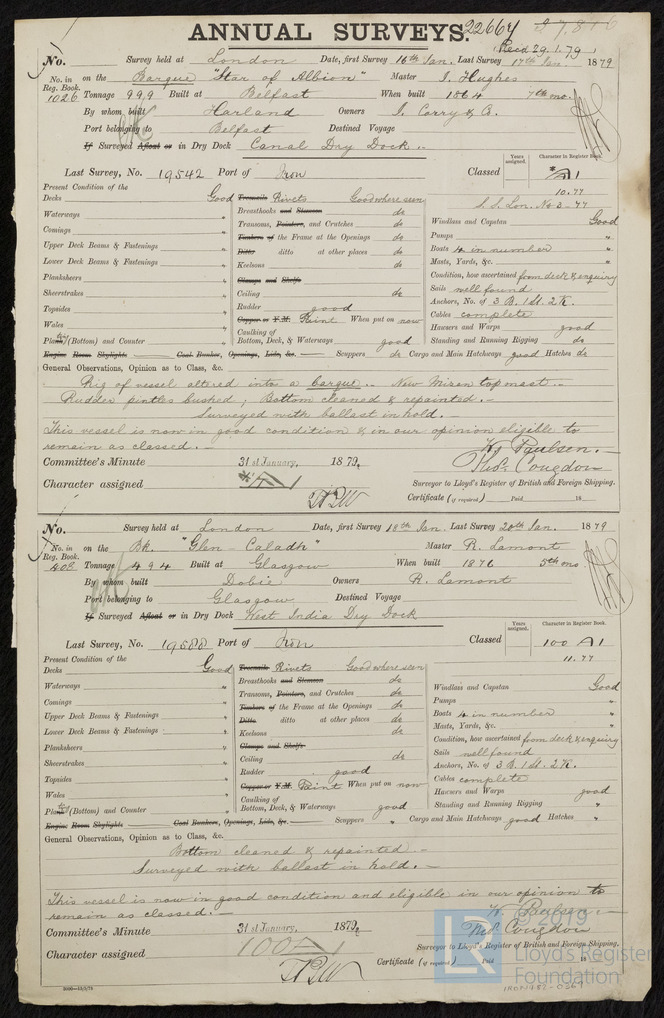 ANNUAL SURVEYS. 22664
Recd 29.1.79
No. Survey held at London Date, first Survey 16th Jan. Last Survey 17th Jan. 1879
No. in Reg. Book. 1026 on the Barque "Star of Albion" Master J. Hughes
Tonnage 999 Built at Belfast When built 1864 7th mo.
By whom built Harland Owners J. Corry & Co.
Port belonging to Belfast Destined Voyage
If Surveyed Afloat or in Dry Dock Canal Dry Dock
Last Survey, No. 19542 Port of Iron Classed Years assigned. Character in Register Book. A1
10.77
S.S. Lon. No 3-77
Present Condition of the
Decks Good
Waterways "
Comings "
Upper Deck Beams & Fastenings "
Lower Deck Beams & Fastenings "
Planksheers "
Sheerstrakes "
Topsides "
Wales "
Plating (Bottom) and Counter "
Treenails Rivets Good where seen
Breasthooks and Stemson do
Transoms, Pointers, and Crutches do
Timbers of the Frame at the Openings do
Ditto ditto at other places do
Keelsons do
Clamps and Shelfs
Ceiling do
Rudder good
Copper or Y.M. Paint When put on now
Caulking of Bottom, Deck, & Waterways good
Windlass and Capstan Good
Pumps "
Boats 4 in number "
Masts, Yards, &c. "
Condition, how ascertained from deck & enquiry
Sails well found
Anchors, No. of 3 B. 1 St. 2 K.
Cables complete
Hawsers and Warps good
Standing and Running Rigging do
Engine Room Skylights Coal Bunker, Openings, Lids, &c. Scuppers do Cargo and Main Hatchways good Hatches do
General Observations, Opinion as to Class, &c.
Rig of vessel altered into a barque. New Mizen topmast.
Rudder pintles bushed; Bottom cleaned & repainted.
Surveyed with ballast in hold.
This vessel is now in good condition & in our opinion eligible to
remain as classed.
W. Paulsen.
Thos. Congdon
Committee's Minute 31st January, 1879.
Character assigned A1
Surveyor to Lloyd's Register of British and Foreign Shipping.
Certificate (if required) Paid 18
No. Survey held at London Date, first Survey 18th Jan. Last Survey 20th Jan. 1879
No. in Reg. Book. 402 on the Bk. "Glen-Caladh" Master R. Lamont
Tonnage 494 Built at Glasgow When built 1876 5th mo
By whom built Dobie Owners R. Lamont
Port belonging to Glasgow Destined Voyage
If Surveyed Afloat or in Dry Dock West India Dry Dock
Last Survey, No. 19588 Port of Iron Classed Years assigned. Character in Register Book. 100 A1
11.77
Present Condition of the
Decks Good
Waterways "
Comings "
Upper Deck Beams & Fastenings "
Lower Deck Beams & Fastenings "
Planksheers "
Sheerstrakes "
Topsides "
Wales "
Plating (Bottom) and Counter "
Treenails Rivets Good where seen
Breasthooks and Stemson do
Transoms, Pointers, and Crutches do
Timbers of the Frame at the Openings do
Ditto ditto at other places do
Keelsons do
Clamps and Shelfs
Ceiling do
Rudder good
Copper or Y.M. Paint When put on now
Caulking of Bottom, Deck, & Waterways good
Windlass and Capstan Good
Pumps "
Boats 4 in number "
Masts, Yards, &c. "
Condition, how ascertained from deck & enquiry
Sails well found
Anchors, No. of 3 B. 1 St. 2 K.
Cables complete
Hawsers and Warps good
Standing and Running Rigging "
Engine Room Skylights Coal Bunker, Openings, Lids, &c. Scuppers " Cargo and Main Hatchways good Hatches "
General Observations, Opinion as to Class, &c.
Bottom cleaned & repainted.
Surveyed with ballast in hold.
This vessel is now in good condition and eligible in our opinion to
remain as classed.
W. Paulsen
Thos. Congdon
Committee's Minute 31st January, 1879
Character assigned 100A1
Surveyor to Lloyd's Register of British and Foreign Shipping.
Certificate (if required) Paid 18
LR © 2019
Lloyd's Register
Foundation